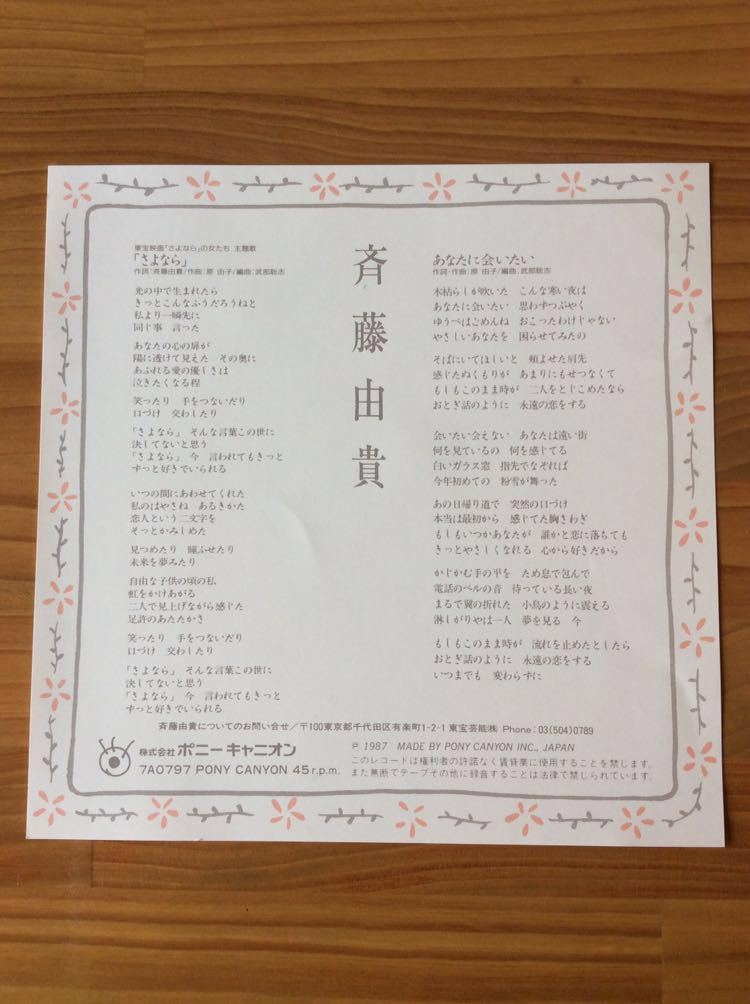 東宝映画「さよなら」の女たち 主題歌
「さよなら」
作詞:斉藤由貴/作曲:原 由子/編曲:武部聡志
光の中で生まれたら
きっとこんなふうだろうねと
私より一瞬先に
同じ事 言った
あなたの心の扉が
陽に透けて見えた その奥に
あふれる愛の優しさは
泣きたくなる程
笑ったり 手をつないだり
口づけ 交わしたり
「さよなら」 そんな言葉この世に
決してないと思う
「さよなら」 今 言われてもきっと
ずっと好きでいられる
いつの間にあわせてくれた
私のはやさね あるきかた
恋人という二文字を
そっとかみしめた
見つめたり 瞳ふせたり
未来を夢みたり
自由な子供の頃の私
虹をかけあがる
二人で見上げながら感じた
足許のあたたかさ
笑ったり 手をつないだり
口づけ 交わしたり
「さよなら」 そんな言葉この世に
決してないと思う
「さよなら」 今 言われてもきっと
ずっと好きでいられる
斉藤由貴
あなたに会いたい
作詞・作曲:原 由子/編曲:武部聡志
木枯らしが吹いた こんな寒い夜は
あなたに会いたい 思わずつぶやく
ゆうべはごめんね おこったわけじゃない
やさしいあなたを 困らせてみたの
そばにいてほしいと 頬よせた肩先
感じたぬくもりが あまりにもせつなくて
もしもこのまま時が 二人をとじこめたなら
おとぎ話のように 永遠の恋をする
会いたい会えない あなたは遠い街
何を見ているの 何を感じてる
白いガラス窓 指先でなぞれば
今年初めての 粉雪が舞った
あの日帰り道で 突然の口づけ
本当は最初から 感じてた胸さわぎ
もしもいつかあなたが 誰かと恋に落ちても
きっとやさしくなれる 心から好きだから
かじかむ手の平を ため息で包んで
電話のベルの音 待っている長い夜
まるで翼の折れた 小鳥のように震える
淋しがりやは一人 夢を見る 今
もしもこのまま時が 流れを止めたとしたら
おとぎ話のように 永遠の恋をする
いつまでも 変わらずに
斉藤由貴についてのお問い合せ/〒100東京都千代田区有楽町1-2-1 東宝芸能㈱ Phone:03(504)0789
株式会社 ポニーキャニオン
7A0797 PONY CANYON 45r.p.m.
℗ 1987 MADE BY PONY CANYON INC., JAPAN
このレコードは権利者の許諾なく賃貸業に使用することを禁じます。
また無断でテープその他に録音することは法律で禁じられています。